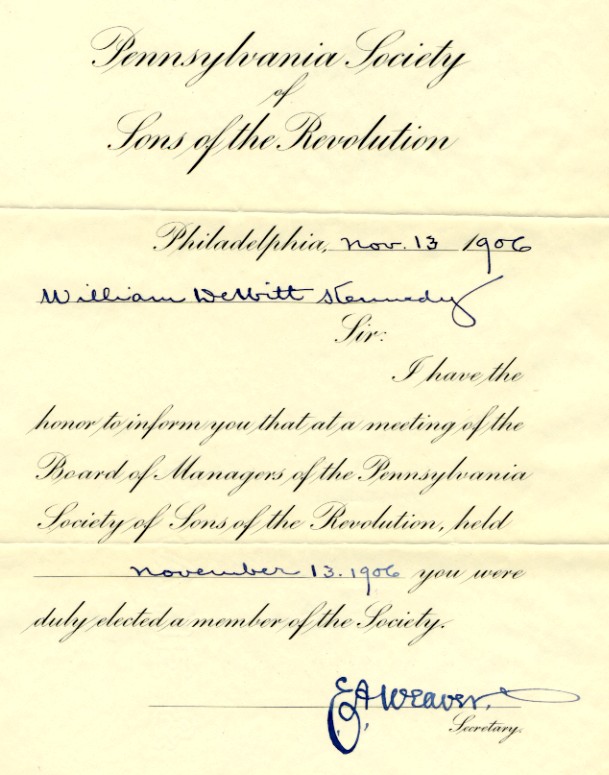 Pennsylvania Society
of
Sons of the Revolution
Philadelphia, Nov. 13 1906
William DeWitt Kennedy
Sir:
I have the
honor to inform you that at a meeting of the
Board of Managers of the Pennsylvania
Society of Sons of the Revolution, held
November 13. 1906 you were
duly elected a member of the Society.
E. A. Weaver.
Secretary.